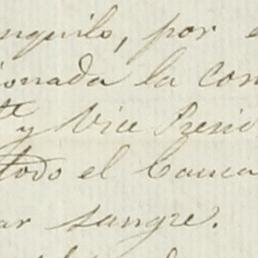 nquilo, por e
ionada la com
te y Vice Presid
todo el Cauca
ar sangre.